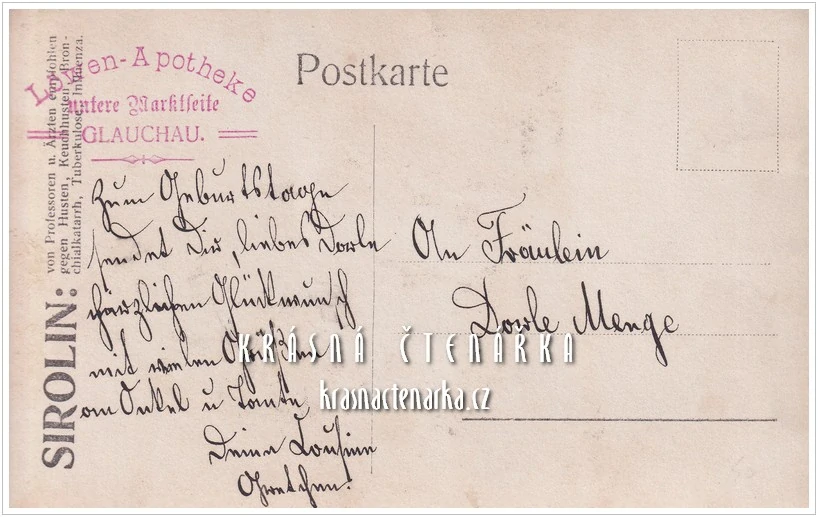 Löwen-Apotheke
untere Marktseite
GLAUCHAU.
Postkarte
SIROLIN:
von Professoren u. Ärzten empfohlen
gegen Husten, Keuchhusten, Bron-
chialkatarrh, Tuberkulose, Influenza.
Zum Geburtstage
sendet Dir, liebes Dorle
härzlichen Glückwunsch
mit vielen Grüßen
an Onkel u Tante
Deine Cousine
Gretchen.
An Fräulein
Dorle Menge
KRÁSNÁ ČTENÁŘKA
krasnactenarka.cz